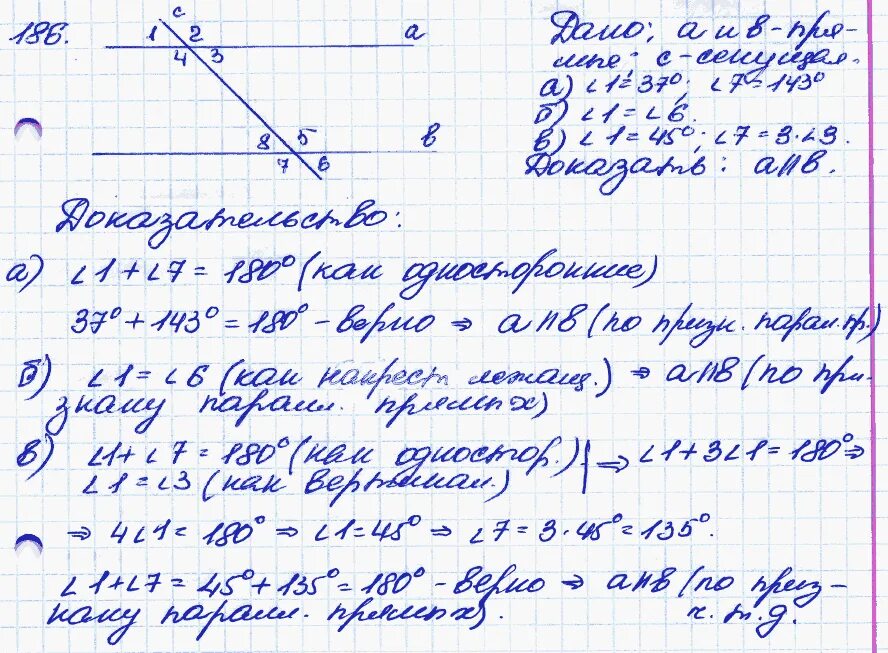 186.
c
1 2 a
4 3
8 5 в
7 6
Дано: а и в - пря-
мые; с - секущая.
а) ∠1 = 37°; ∠7 = 143°
б) ∠1 = ∠6.
в) ∠1 = 45°; ∠7 = 3·∠3.
Доказать: а II в.
Доказательство:
а) ∠1 + ∠7 = 180° (как односторонние)
37° + 143° = 180° - верно ⇒ а II в (по призн. парал. пр.)
б) ∠1 = ∠6 (как накрест лежащ.) ⇒ а II в (по при-
знаку паралл. прямых)
в) ∠1 + ∠7 = 180° (как одностор.) | ⇒ ∠1 + 3∠1 = 180° ⇒
∠1 = ∠3 (как вертикал.)
⇒ 4∠1 = 180° ⇒ ∠1 = 45° ⇒ ∠7 = 3·45° = 135°.
∠1 + ∠7 = 45° + 135° = 180° - верно ⇒ а II в (по приз-
наку паралл. прямых). ч.т.д.